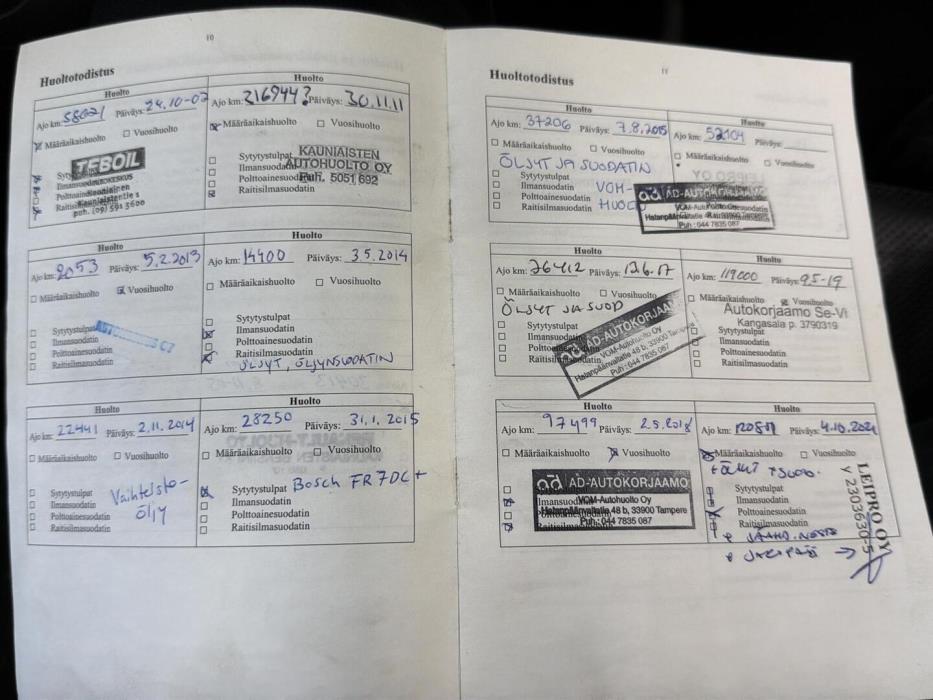 10
Huoltotodistus
Huolto
Ajo km: 58021 Päiväys: 24.10-02
Määräaikaishuolto Vuosihuolto
TEBOIL
AUTOKESKUS
Kauniainen
Kauniaistentie
puh. (09) 591 3600
Huolto
Ajo km: Päiväys: 30.11.11
Määräaikaishuolto Vuosihuolto
KAUNIAISTEN
AUTOHUOLTO OY
Puh. 5051 692
Sytytystulpat
Ilmansuodatin
Polttoainesuodatin
Raitisilmasuodatin
Huolto
Ajo km: 2053 Päiväys: 5.2.2013
Määräaikaishuolto Vuosihuolto
Sytytystulpat
Ilmansuodatin
Polttoainesuodatin
Raitisilmasuodatin
Huolto
Ajo km: 14400 Päiväys: 3.5.2014
Määräaikaishuolto Vuosihuolto
Sytytystulpat
Ilmansuodatin
Polttoainesuodatin
Raitisilmasuodatin
ÖLJYT, ÖLJYNSUODATIN
Huolto
Ajo km: 22441 Päiväys: 2.11.2014
Määräaikaishuolto Vuosihuolto
Sytytystulpat
Ilmansuodatin
Polttoainesuodatin
Raitisilmasuodatin
Vaihteisto-
öljy
Huolto
Ajo km: 28250 Päiväys: 31.1.2015
Määräaikaishuolto Vuosihuolto
Sytytystulpat Bosch FR7DC+
Ilmansuodatin
Polttoainesuodatin
Raitisilmasuodatin
11
Huoltotodistus
Huolto
Ajo km: 37206 Päiväys: 7.8.2015
Määräaikaishuolto Vuosihuolto
ÖLJYT JA SUODATIN
Sytytystulpat
Ilmansuodatin VOM-
Polttoainesuodatin
Raitisilmasuodatin
Huolto
Ajo km: 52104 Päiväys:
Määräaikaishuolto Vuosihuolto
ad AD-AUTOKORJAAMO
VOM-Autohuolto Oy
Hatanpäänvaltatie 48 b, 33900 Tampere
Puh: 044 7835 087
Huolto
Ajo km: 76412 Päiväys: 13.6.17
Määräaikaishuolto Vuosihuolto
ÖLJYT JA SUOD
Sytytystulpat
Ilmansuodatin
Polttoainesuodatin
Raitisilmasuodatin
ad AD-AUTOKORJAAMO
VOM-Autohuolto Oy
Hatanpäänvaltatie 48 b, 33900 Tampere
Puh: 044 7835 087
Huolto
Ajo km: 119000 Päiväys: 9.5-19
Määräaikaishuolto Vuosihuolto
Autokorjaamo Se-Vi
Kangasala p. 3790319
Sytytystulpat
Ilmansuodatin
Polttoainesuodatin
Raitisilmasuodatin
Huolto
Ajo km: 97499 Päiväys: 2.5.2018
Määräaikaishuolto Vuosihuolto
ad AD-AUTOKORJAAMO
VOM-Autohuolto Oy
Hatanpäänvaltatie 48 b, 33900 Tampere
Puh: 044 7835 087
Huolto
Ajo km: Päiväys: 4.10.2021
Määräaikaishuolto Vuosihuolto
Sytytystulpat
Ilmansuodatin
Polttoainesuodatin
Raitisilmasuodatin
+ JÄÄHD.NESTE
LEIPRO OY
Y 2303630-5